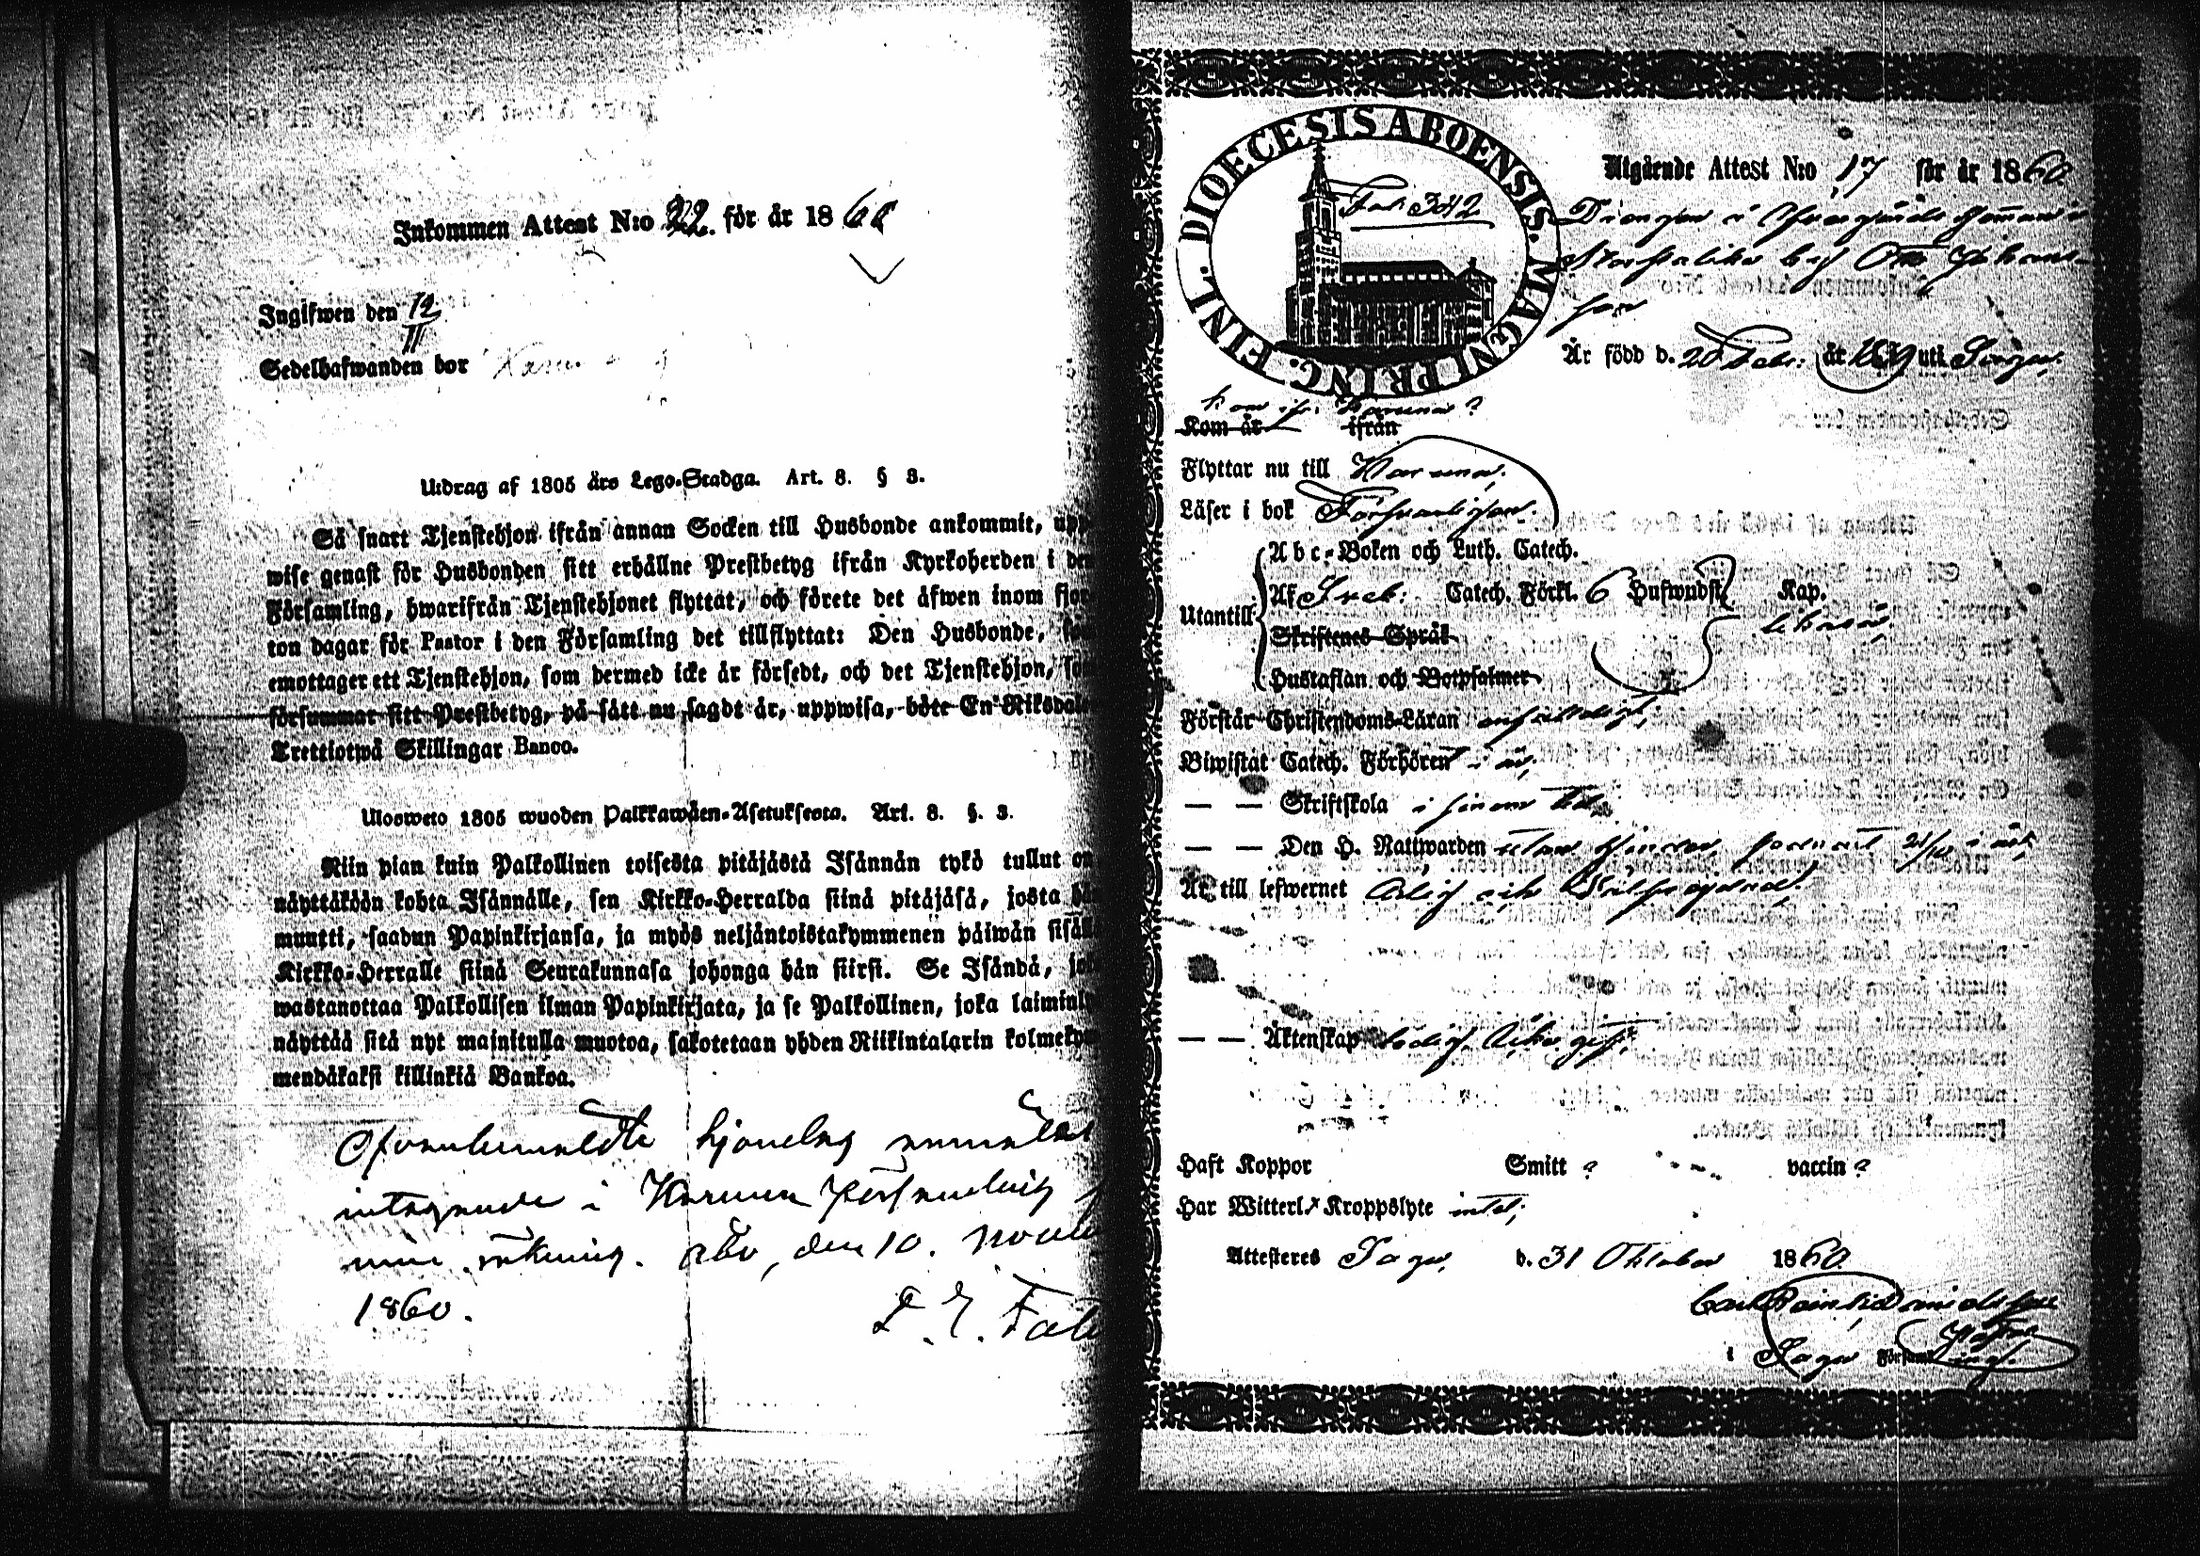 Inkommen Attest N:o 22. för år 1860
Ingifwen den 12/11
Sedelhafwanden bor
Utdrag af 1805 års Lego-Stadga. Art. 8. § 3.
Så snart Tjenstehjon ifrån annan Socken till Husbonde ankommit, upp
wise genast för Husbonden sitt erhållne Prestbetyg ifrån Kyrkoherden i den
Församling, hwarifrån Tjenstehjonet flyttat, och förete det äfwen inom fjor
ton dagar för Pastor i den Församling det tillflyttat: Den Husbonde, som
emottager ett Tjenstehjon, som dermed icke är försedt, och det Tjenstehjon, som
försummar sitt Prestbetyg, på sätt nu sagdt är, uppwisa, böte En Riksdaler
Trettiotwå Skillingar Banco.
Ulosweto 1805 wuoden Palkkawäen-Asetuksesta. Art. 8. §. 3.
Niin pian kuin Palkollinen toisesta pitäjästä Isännän tykö tullut on
näyttäköön kohta Isännälle, sen Kirkko-Herralda siinä pitäjäsä, josta hän
muutti, saadun Papinkirjansa, ja myös neljäntoistakymmenen päiwän sisäll
Kirkko-Herralle siinä Seurakunnasa johonga hän siirsi. Se Isändä, joka
wastanottaa Palkollisen ilman Papinkirjata, ja se Palkollinen, joka laiminly
näyttää sitä nyt mainitulla muotoa, sakotetaan yhden Riikintalarin kolmekym
mendäkaksi killinkiä Bankoa.
Ofvanbemeldte hjonelag anmäles
intagande i Karuna Församling
min räkning. Åbo, den 10. Nov
1860.
DIOECESIS ABOENSIS. MAGNI PRINC. FINL.
Fol: 342
Utgående Attest N:o 17 för år 1860
Är född d. 20 Febr: år 1839 uti Sagu.
Kom är ifrån
Flyttar nu till Karuna,
Läser i bok Försvarligen.
Abc-Boken och Luth. Catech.
Utantill: Af Sveb: Catech. Förkl. 6 Hufwudst. Kap.
Skriftenes Språk
Hustaflan och Botpsalmer
Förstår Christendoms-Läran
Biwistat Catech. Förhören i år,
— — Skriftskola i sinom tid
— — Den H. Nattwarden utan hinder, senast 21/10 i år,
Är till lefwernet ärlig och
— — Äktenskap ledig, icke gift,
Haft Koppor Smitt ? vaccin ?
Har Witterl. Kroppslyte intet,
Attesteres Sagu, d. 31 Oktober 1860.
i Sagu Församl.